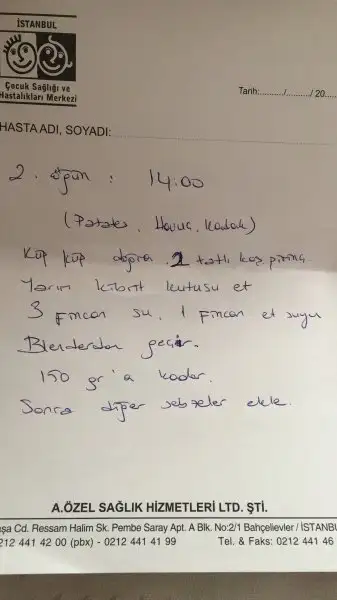 İSTANBUL
Çocuk Sağlığı ve
Hastalıkları Merkezi
Tarih:........../........../ 20.....
HASTA ADI, SOYADI:
2. öğün : 14:00
(Patates, Havuç, kabak)
Küp küp doğra. 2 tatlı kaş pirinç.
Yarım kibrit kutusu et
3 Fincan su, 1 Fincan et suyu
Blenderdan geçir.
150 gr'a kadar.
Sonra diğer sebzeler ekle.
A.ÖZEL SAĞLIK HİZMETLERİ LTD. ŞTİ.
şa Cd. Ressam Halim Sk. Pembe Saray Apt. A Blk. No:2/1 Bahçelievler / İSTANBU
212 441 42 00 (pbx) - 0212 441 41 99 Tel. & Faks: 0212 441 46